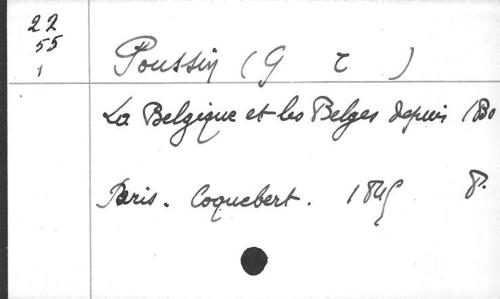 22
55
1
Poussin (G T )
La Belgique et les Belges depuis 1830
Paris. Coquebert. 1845 8°.